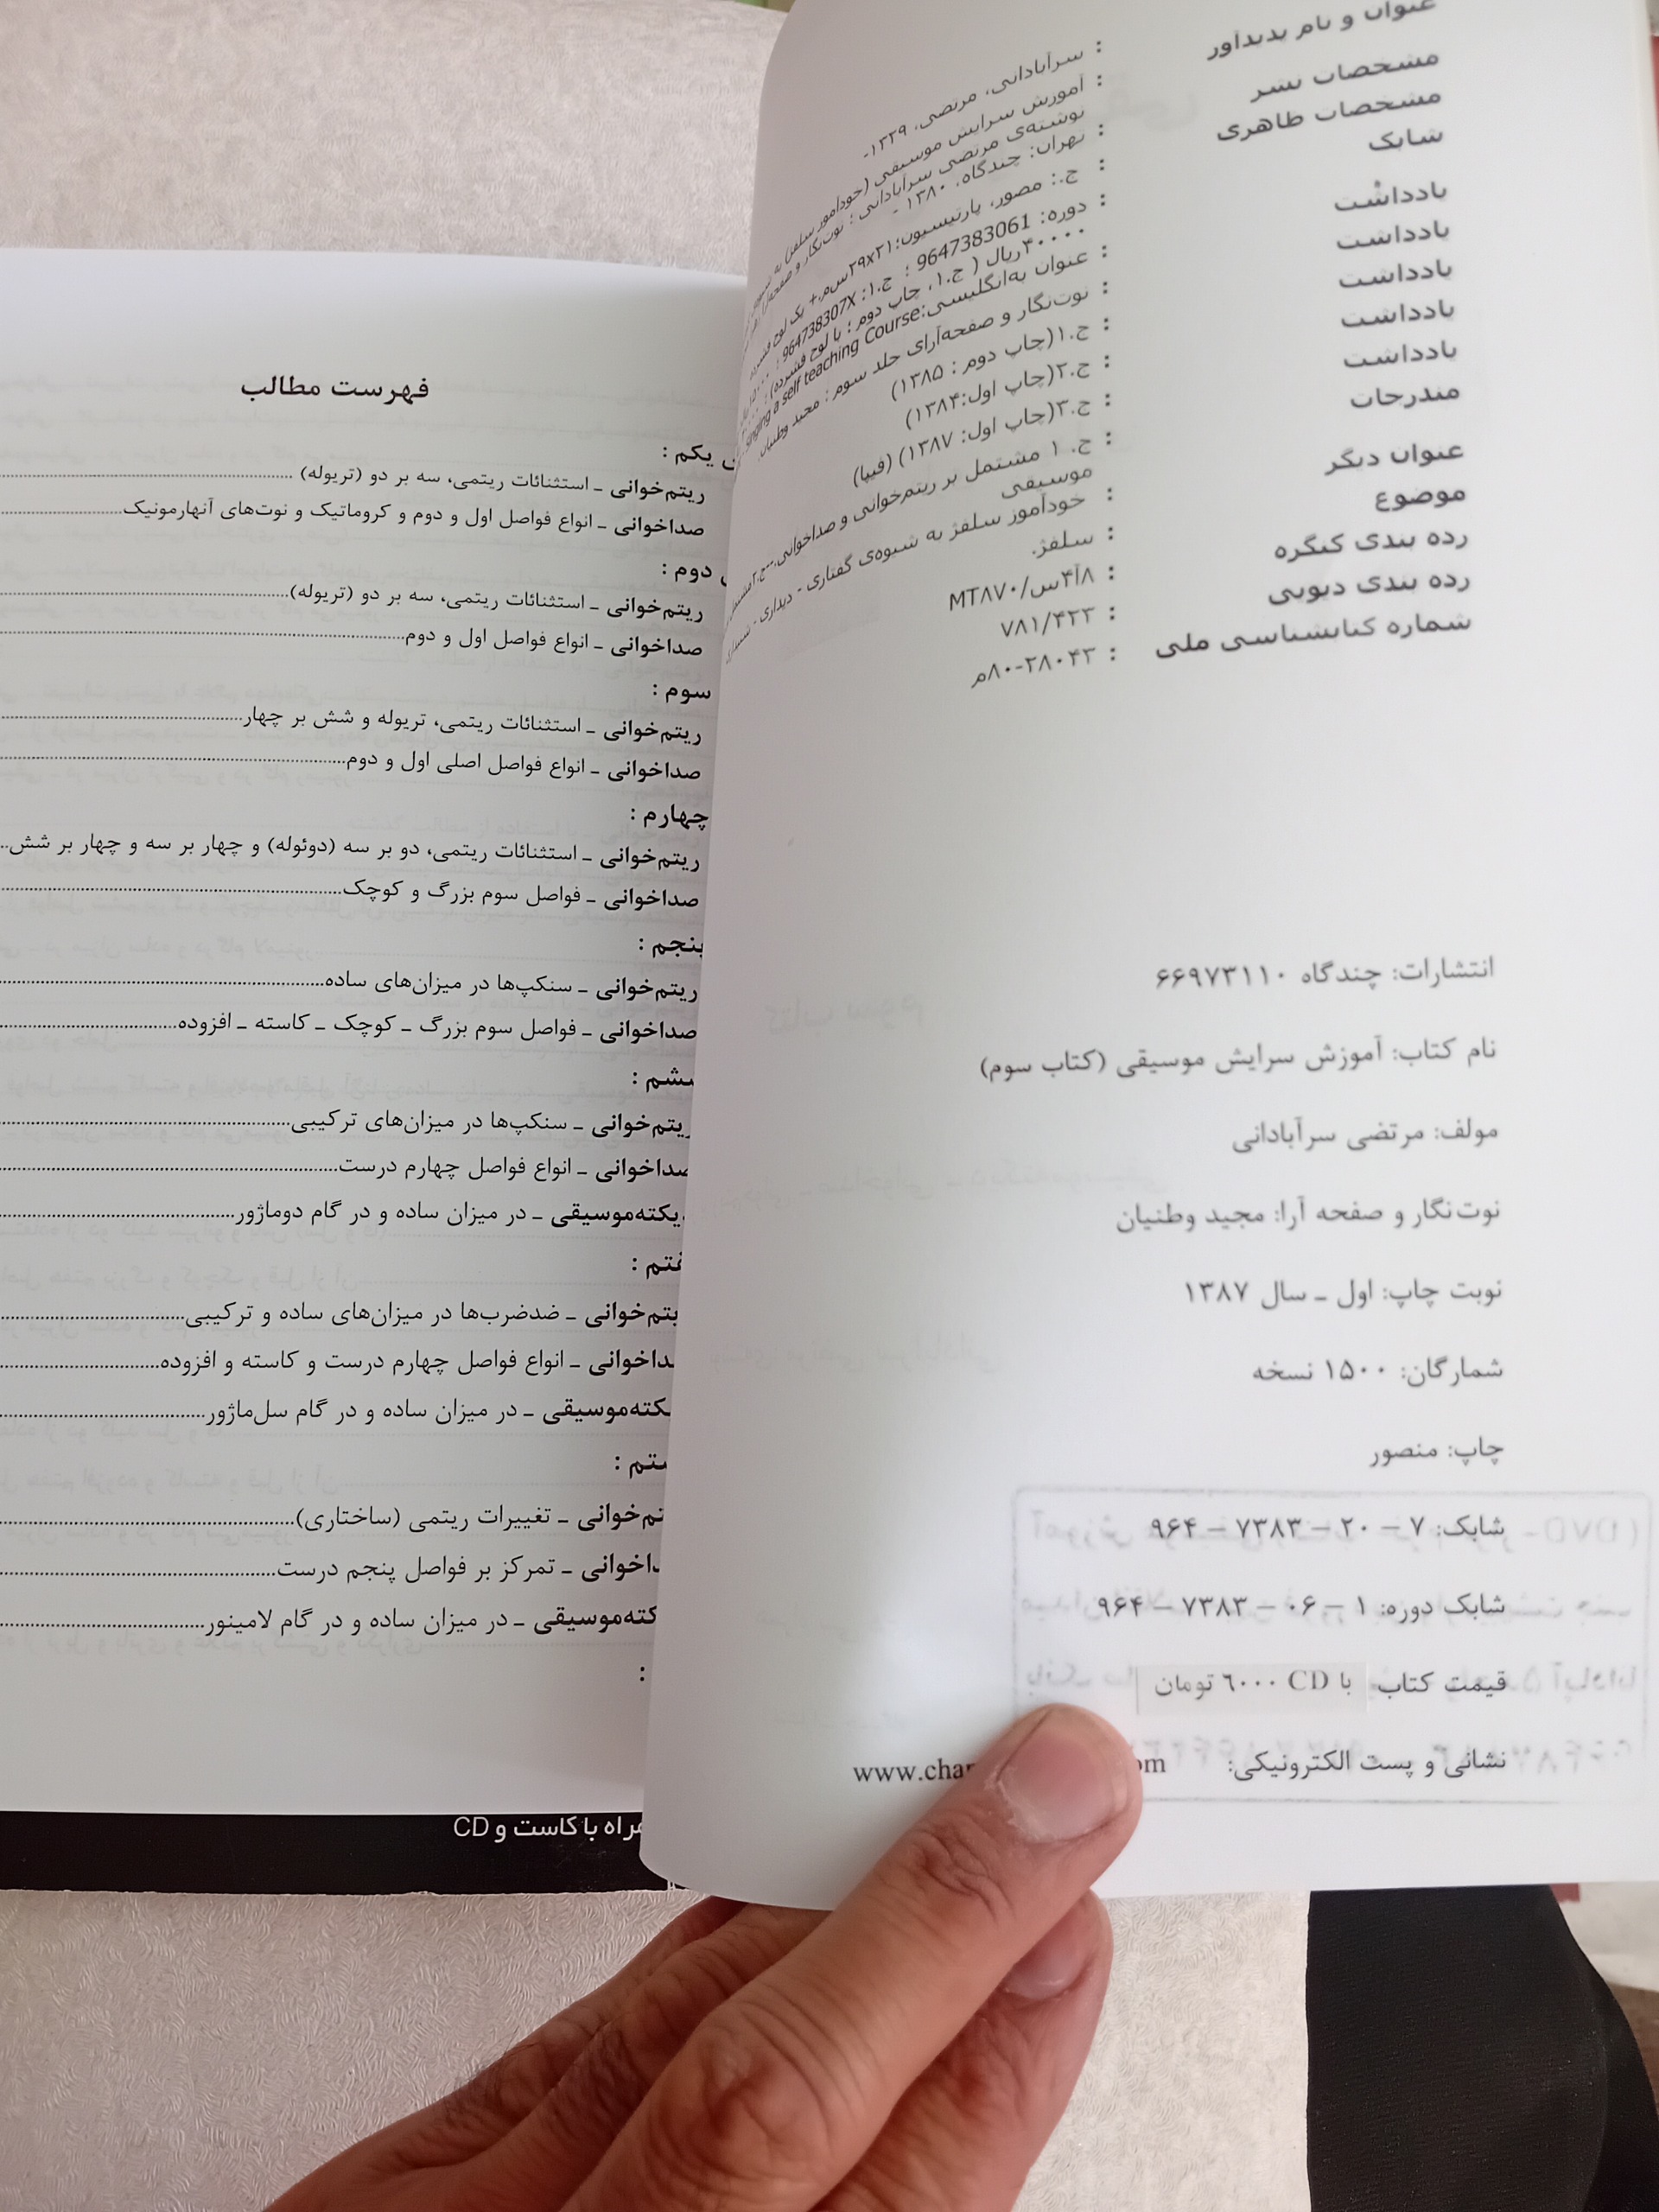 عنوان و نام پدیدآور
: سرآبادانی، مرتضی، ۱۳۳۹-
: آموزش سرایش موسیقی (خودآموز سلفژ) به
نوشته‌ی مرتضی سرآبادانی ؛ نوت‌نگار و صفحه‌آرا
مشخصات نشر : تهران: چندگاه، ۱۳۸۰ -
مشخصات ظاهری : ج.: مصور، پارتیسیون؛ ۲۹x۲۱س‌م.+ یک لوح فشرده
شابک : دوره: 9647383061 ؛ ج.۱: 964738307X
۴۰۰۰۰ ریال ( ج.۱، چاپ دوم ؛ با لوح فشرده)
یادداشت : عنوان به‌انگلیسی: singing a self teaching Course
یادداشت : نوت‌نگار و صفحه‌آرای جلد سوم : مجید وطنیان.
یادداشت : ج.۱(چاپ دوم : ۱۳۸۵)
یادداشت : ج.۲(چاپ اول:۱۳۸۴)
یادداشت : ج.۳(چاپ اول: ۱۳۸۷) (فیپا)
مندرجات : ج. ۱ مشتمل بر ریتم‌خوانی و صداخوانی.
موسیقی
عنوان دیگر : خودآموز سلفژ به شیوه‌ی گفتاری - دیداری -
موضوع : سلفژ.
رده بندی کنگره : MT۸۷۰/س۴آ۸
رده بندی دیویی : ۷۸۱/۴۲۳
شماره کتابشناسی ملی : ۸۰-۲۸۰۴۳م
انتشارات: چندگاه ۶۶۹۷۳۱۱۰
نام کتاب: آموزش سرایش موسیقی (کتاب سوم)
مولف: مرتضی سرآبادانی
نوت‌نگار و صفحه آرا: مجید وطنیان
نوبت چاپ: اول ـ سال ۱۳۸۷
شمارگان: ۱۵۰۰ نسخه
چاپ: منصور
شابک: ۷ – ۲۰ – ۷۳۸۳ – ۹۶۴
شابک دوره: ۱ – ۰۶ – ۷۳۸۳ – ۹۶۴
قیمت کتاب با CD ۶۰۰۰ تومان
نشانی و پست الکترونیکی: www.cha
فهرست مطالب
یکم :
ریتم‌خوانی ـ استثنائات ریتمی، سه بر دو (تریوله)
صداخوانی ـ انواع فواصل اول و دوم و کروماتیک و نوت‌های آنهارمونیک
دوم :
ریتم‌خوانی ـ استثنائات ریتمی، سه بر دو (تریوله)
صداخوانی ـ انواع فواصل اول و دوم
سوم :
ریتم‌خوانی ـ استثنائات ریتمی، تریوله و شش بر چهار
صداخوانی ـ انواع فواصل اصلی اول و دوم
چهارم :
ریتم‌خوانی ـ استثنائات ریتمی، دو بر سه (دوئوله) و چهار بر سه و چهار بر شش
صداخوانی ـ فواصل سوم بزرگ و کوچک
پنجم :
ریتم‌خوانی ـ سنکپ‌ها در میزان‌های ساده
صداخوانی ـ فواصل سوم بزرگ ـ کوچک ـ کاسته ـ افزوده
ششم :
ریتم‌خوانی ـ سنکپ‌ها در میزان‌های ترکیبی
صداخوانی ـ انواع فواصل چهارم درست
دیکته‌موسیقی ـ در میزان ساده و در گام دوماژور
هفتم :
ریتم‌خوانی ـ ضدضرب‌ها در میزان‌های ساده و ترکیبی
صداخوانی ـ انواع فواصل چهارم درست و کاسته و افزوده
دیکته‌موسیقی ـ در میزان ساده و در گام سل‌ماژور
هشتم :
ریتم‌خوانی ـ تغییرات ریتمی (ساختاری)
صداخوانی ـ تمرکز بر فواصل پنجم درست
دیکته‌موسیقی ـ در میزان ساده و در گام لامینور
همراه با کاست و CD